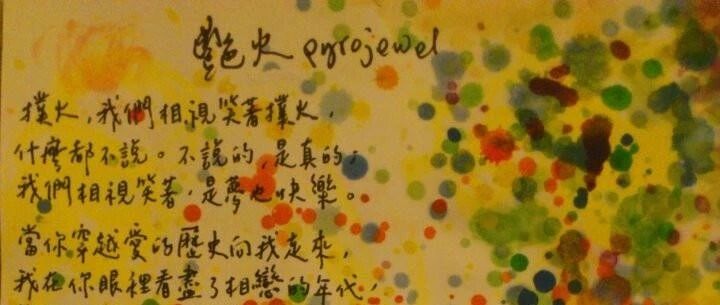 艷火 pyrojewel
撲火，我們相視笑著撲火，
什麼都不說。不說的，是真的，
我們相視笑著，是夢也快樂。
當你穿越愛的歷史向我走來，
我在你眼裡看盡了相戀的年代，